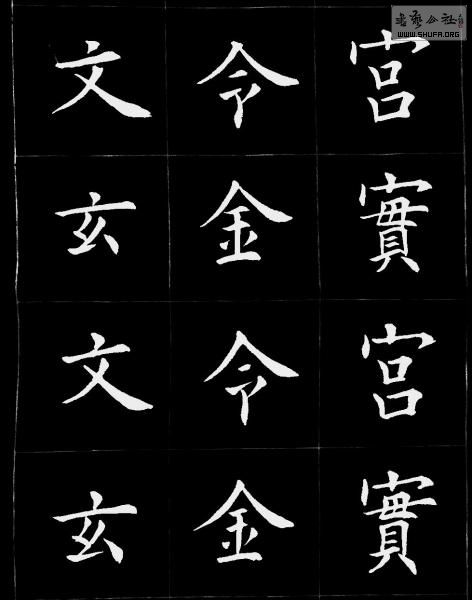 宮實宮實
令金令金
文玄文玄
書藝公社
WWW.SHUFA.ORG